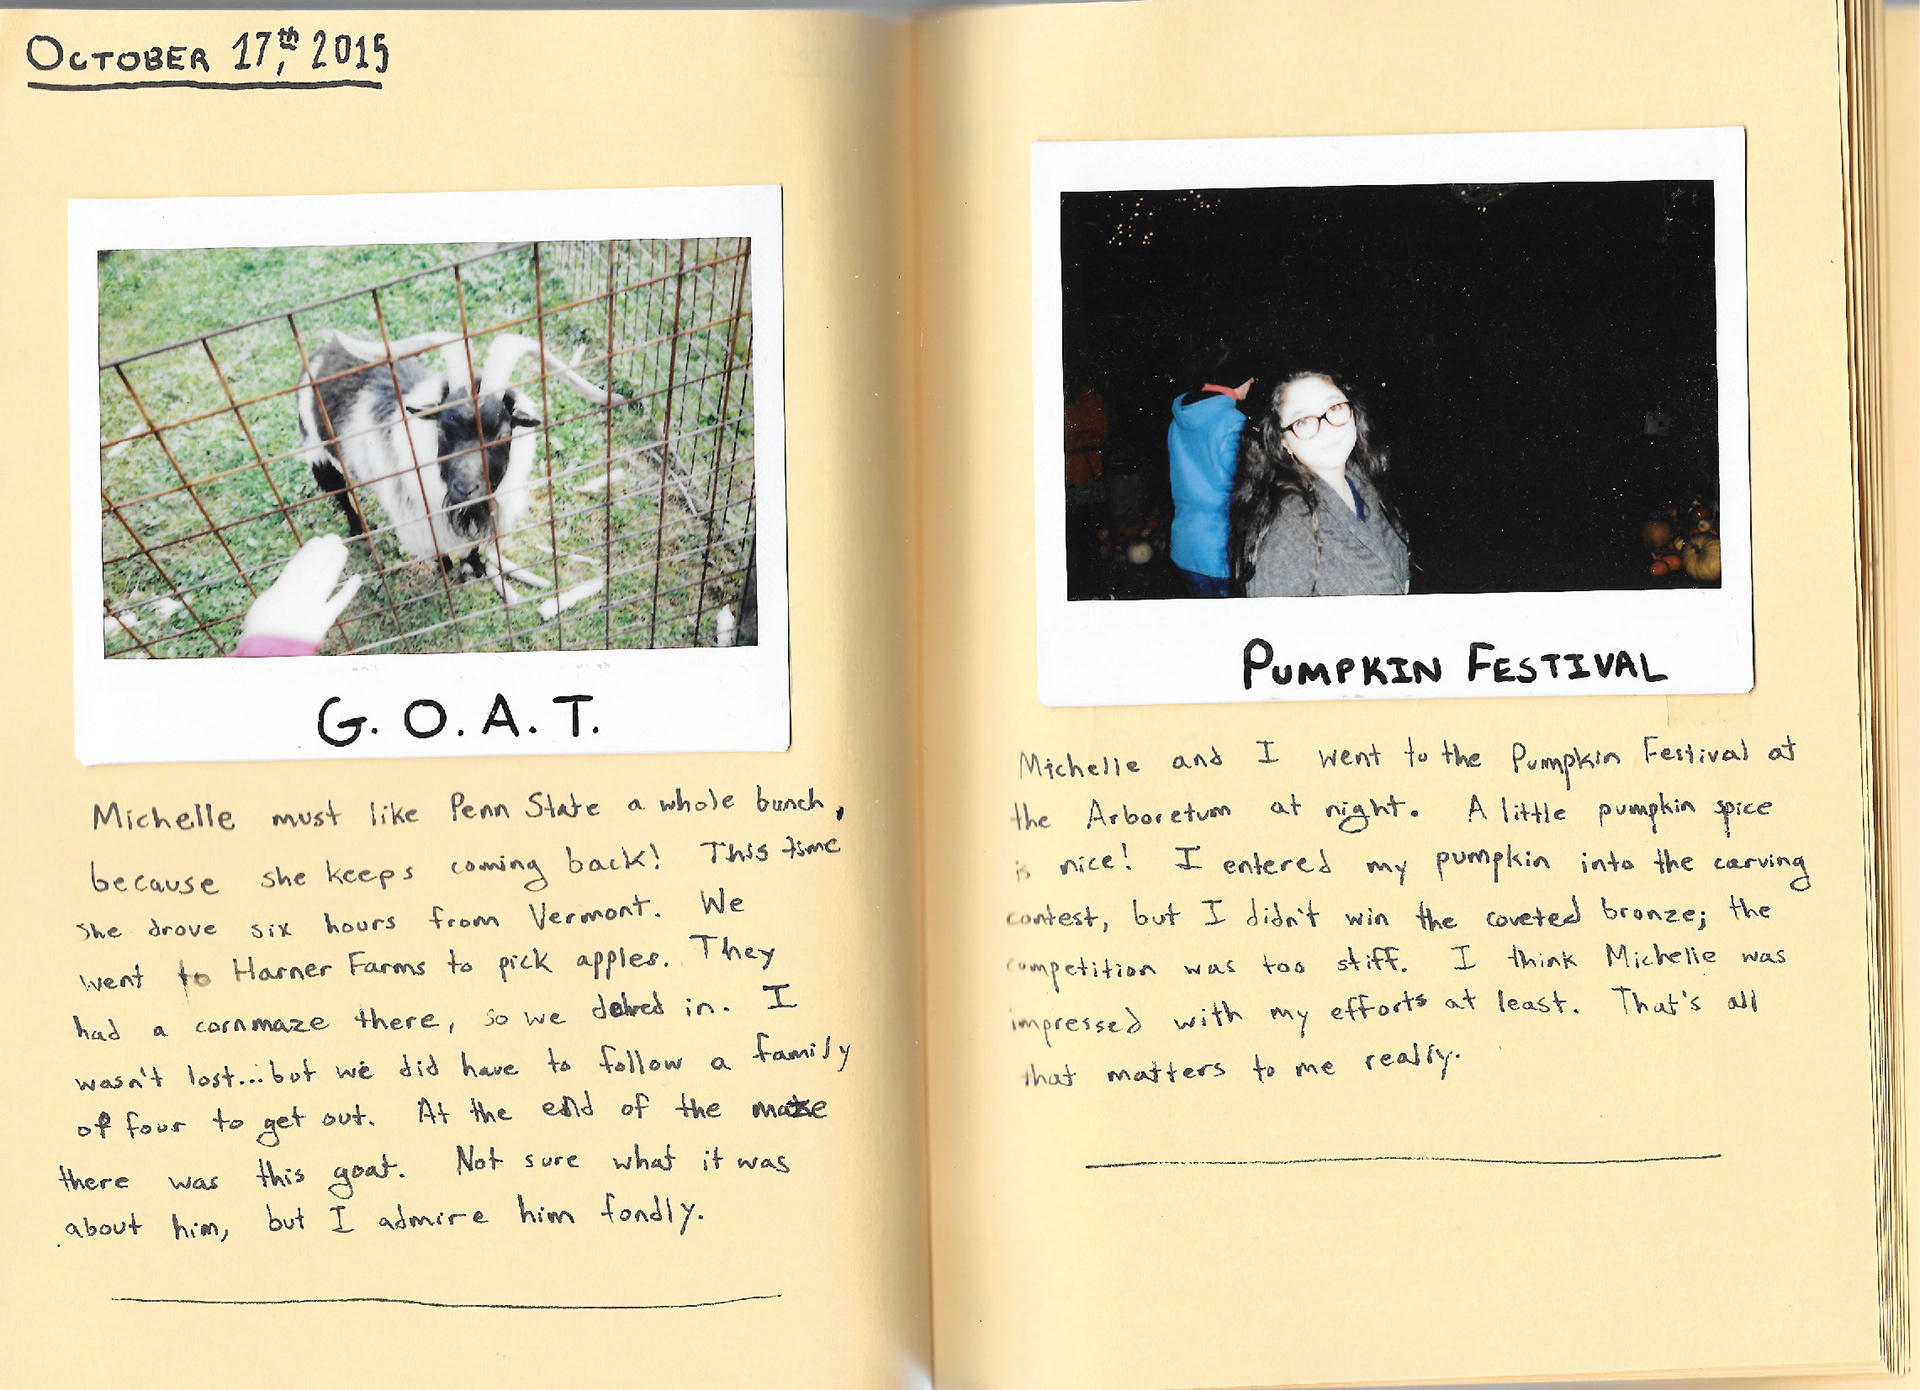 OCTOBER 17th, 2015
G. O. A. T.
Michelle must like Penn State a whole bunch,
because she keeps coming back! This time
she drove six hours from Vermont. We
went to Harner Farms to pick apples. They
had a cornmaze there, so we delved in. I
wasn't lost...but we did have to follow a family
of four to get out. At the end of the maze
there was this goat. Not sure what it was
about him, but I admire him fondly.
PUMPKIN FESTIVAL
Michelle and I went to the Pumpkin Festival at
the Arboretum at night. A little pumpkin spice
is nice! I entered my pumpkin into the carving
contest, but I didn't win the coveted bronze; the
competition was too stiff. I think Michelle was
impressed with my efforts at least. That's all
that matters to me really.